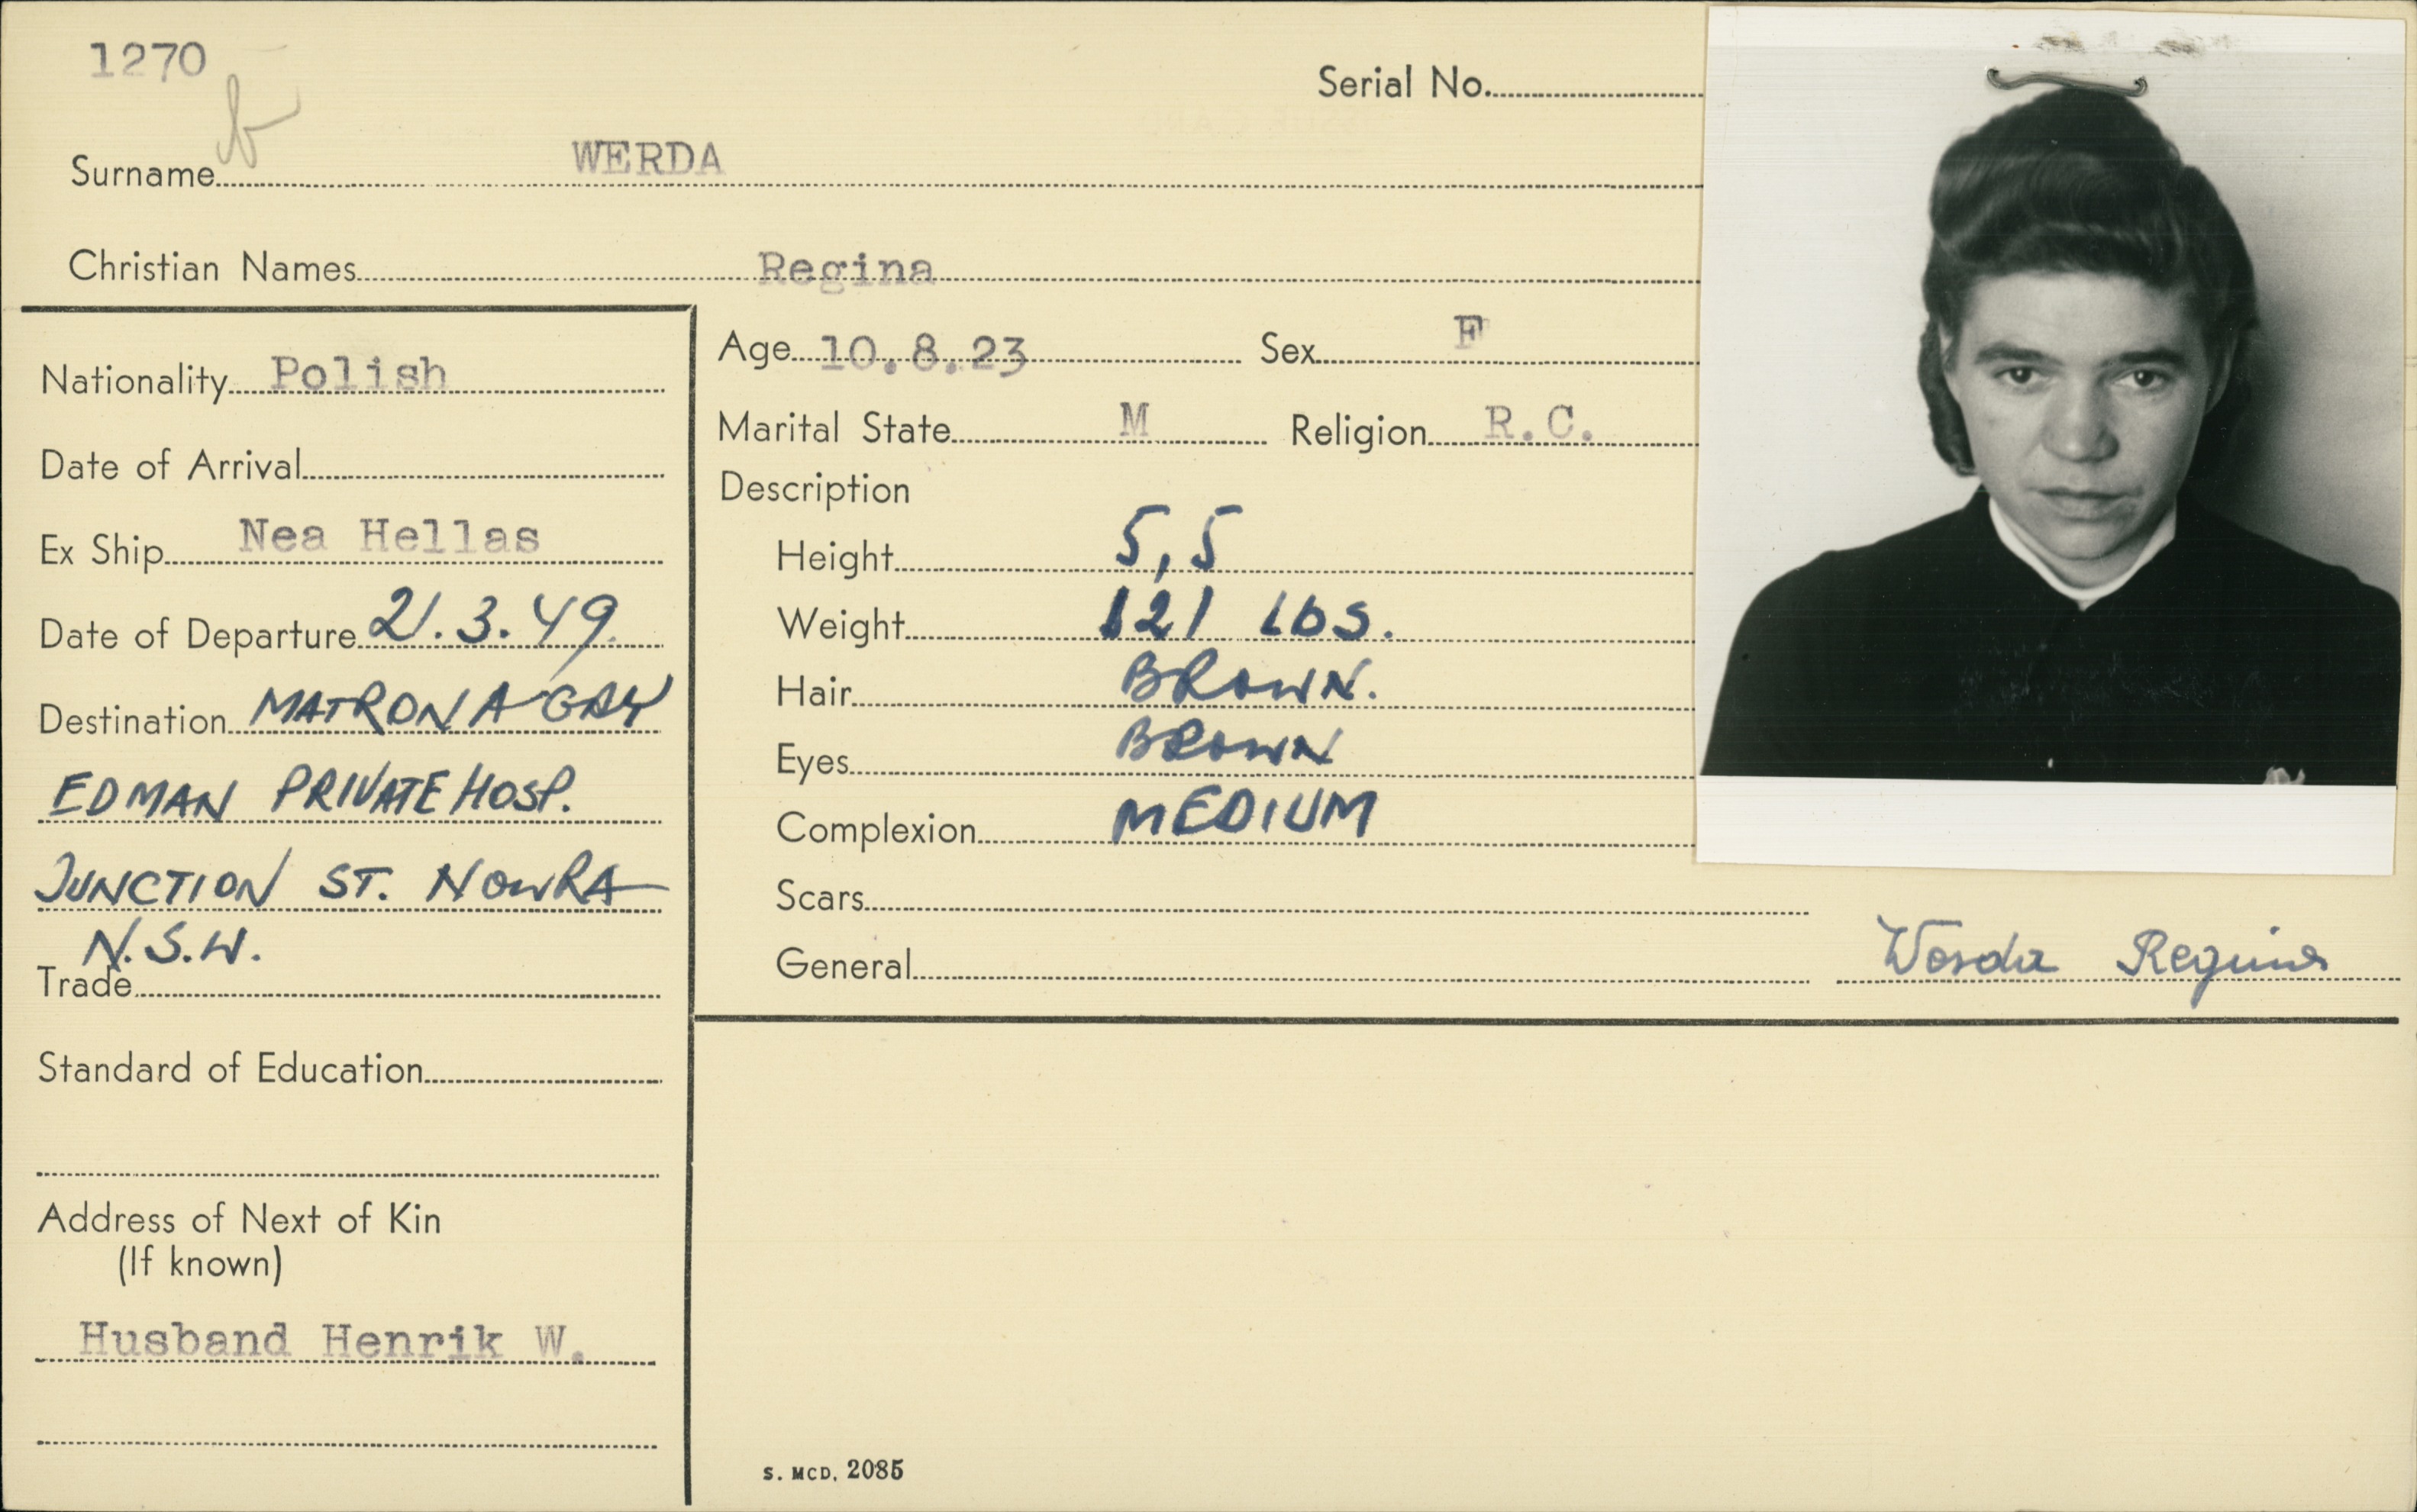 1270
Serial No.
Surname WERDA
Christian Names Regina
Nationality Polish
Date of Arrival
Ex Ship Nea Hellas
Date of Departure 21.3.49.
Destination MATRON A GAY
EDMAN PRIVATE HOSP.
JUNCTION ST. NOWRA
N.S.W.
Trade
Standard of Education
Address of Next of Kin
(If known)
Husband Henrik W.
Age 10.8.23 Sex F
Marital State M Religion R.C.
Description
Height 5,5
Weight 121 lbs.
Hair BROWN.
Eyes BROWN
Complexion MEDIUM
Scars
General
Werda Regina
S. MCD. 2085